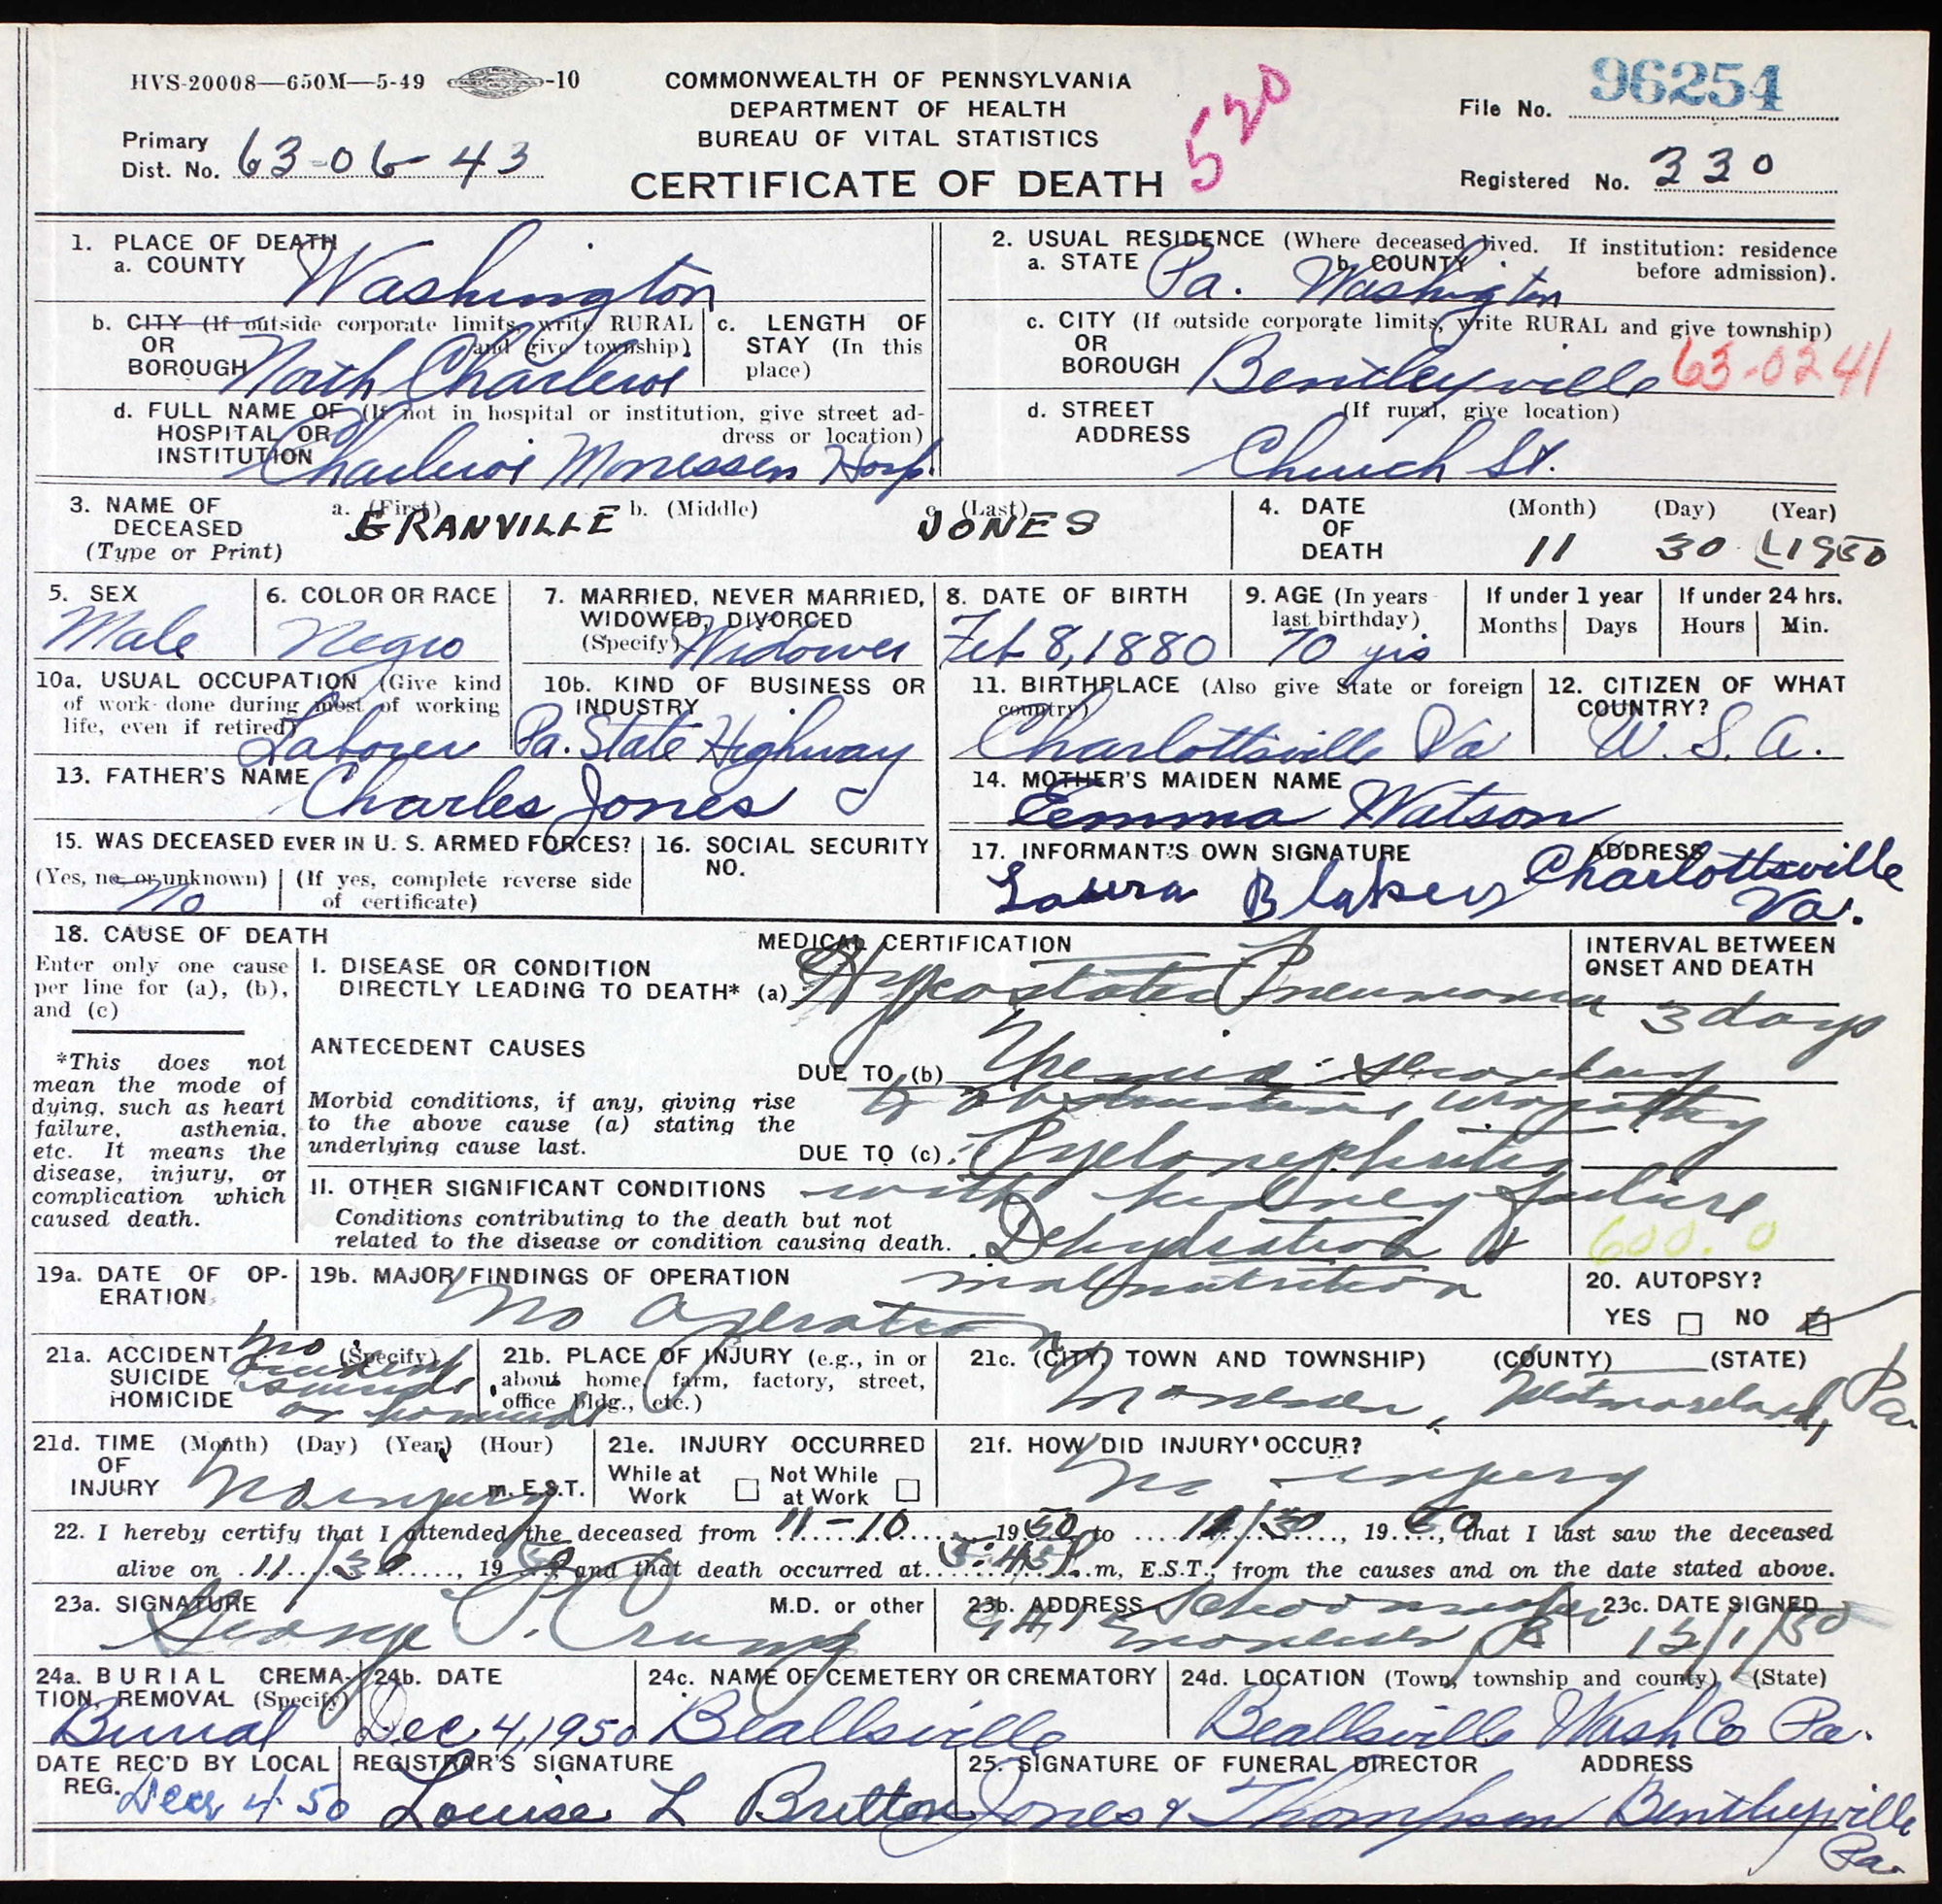 HVS-20008—650M—5-49 -10
COMMONWEALTH OF PENNSYLVANIA
DEPARTMENT OF HEALTH
BUREAU OF VITAL STATISTICS
CERTIFICATE OF DEATH
520
File No. 96254
Primary
Dist. No. 63-06-43
Registered No. 330
1. PLACE OF DEATH
a. COUNTY Washington
b. CITY (If outside corporate limits, write RURAL
OR and give township)
BOROUGH North Charleroi
c. LENGTH OF
STAY (In this
place)
d. FULL NAME OF (If not in hospital or institution, give street ad-
HOSPITAL OR dress or location)
INSTITUTION Charleroi Monessen Hosp.
2. USUAL RESIDENCE (Where deceased lived. If institution: residence
before admission).
a. STATE Pa. b. COUNTY Washington
c. CITY (If outside corporate limits, write RURAL and give township)
OR
BOROUGH Bentleyville 63-0241
d. STREET (If rural, give location)
ADDRESS Church St.
3. NAME OF
DECEASED
(Type or Print)
a. (First) b. (Middle) c. (Last)
GRANVILLE JONES
4. DATE
OF
DEATH
(Month) (Day) (Year)
11 30 1950
5. SEX
Male
6. COLOR OR RACE
Negro
7. MARRIED, NEVER MARRIED,
WIDOWED, DIVORCED
(Specify) Widower
8. DATE OF BIRTH
Feb 8, 1880
9. AGE (In years
last birthday)
70 yrs
If under 1 year
Months Days
If under 24 hrs.
Hours Min.
10a. USUAL OCCUPATION (Give kind
of work done during most of working
life, even if retired)
Laborer
10b. KIND OF BUSINESS OR
INDUSTRY
Pa. State Highway
11. BIRTHPLACE (Also give State or foreign
country)
Charlottsville Va
12. CITIZEN OF WHAT
COUNTRY?
U. S. A.
13. FATHER'S NAME
Charles Jones
14. MOTHER'S MAIDEN NAME
Eemma Watson
15. WAS DECEASED EVER IN U. S. ARMED FORCES?
(Yes, no or unknown) (If yes, complete reverse side
of certificate)
No
16. SOCIAL SECURITY
NO.
17. INFORMANT'S OWN SIGNATURE ADDRESS
Laura Blakey Charlottsville
Va.
18. CAUSE OF DEATH
Enter only one cause
per line for (a), (b),
and (c)
*This does not
mean the mode of
dying, such as heart
failure, asthenia,
etc. It means the
disease, injury, or
complication which
caused death.
MEDICAL CERTIFICATION
I. DISEASE OR CONDITION
DIRECTLY LEADING TO DEATH* (a) Hypostatic Pneumonia
INTERVAL BETWEEN
ONSET AND DEATH
3 days
ANTECEDENT CAUSES
Morbid conditions, if any, giving rise
to the above cause (a) stating the
underlying cause last.
DUE TO (b) Uremia: secondary
to obstructive uropathy
DUE TO (c) Pyelonephritis
with kidney failure
II. OTHER SIGNIFICANT CONDITIONS
Conditions contributing to the death but not
related to the disease or condition causing death.
Dehydration &
malnutrition
600.0
19a. DATE OF OP-
ERATION
19b. MAJOR FINDINGS OF OPERATION
No operation
20. AUTOPSY?
YES NO
21a. ACCIDENT (Specify)
SUICIDE
HOMICIDE
no
accident
suicide
or homicide
21b. PLACE OF INJURY (e.g., in or
about home, farm, factory, street,
office bldg., etc.)
21c. (CITY, TOWN AND TOWNSHIP) (COUNTY) (STATE)
Monessen, Westmoreland, Pa.
21d. TIME (Month) (Day) (Year) (Hour)
OF
INJURY m. E.S.T.
No injury
21e. INJURY OCCURRED
While at Not While
Work at Work
21f. HOW DID INJURY OCCUR?
No injury
22. I hereby certify that I attended the deceased from 11-10, 1950 to 11/30, 1950, that I last saw the deceased
alive on 11/30, 1950 and that death occurred at 5:45 P.m, E.S.T., from the causes and on the date stated above.
23a. SIGNATURE M.D. or other
George P.
23b. ADDRESS Schoonmaker
Monessen Pa
23c. DATE SIGNED
12/1/50
24a. BURIAL CREMA-
TION, REMOVAL (Specify)
Burial
24b. DATE
Dec. 4, 1950
24c. NAME OF CEMETERY OR CREMATORY
Beallsville
24d. LOCATION (Town, township and county) (State)
Beallsville Wash Co Pa.
DATE REC'D BY LOCAL
REG. Dec 4 50
REGISTRAR'S SIGNATURE
Louise L Britton
25. SIGNATURE OF FUNERAL DIRECTOR ADDRESS
Jones & Thompson Bentleyville
Pa.